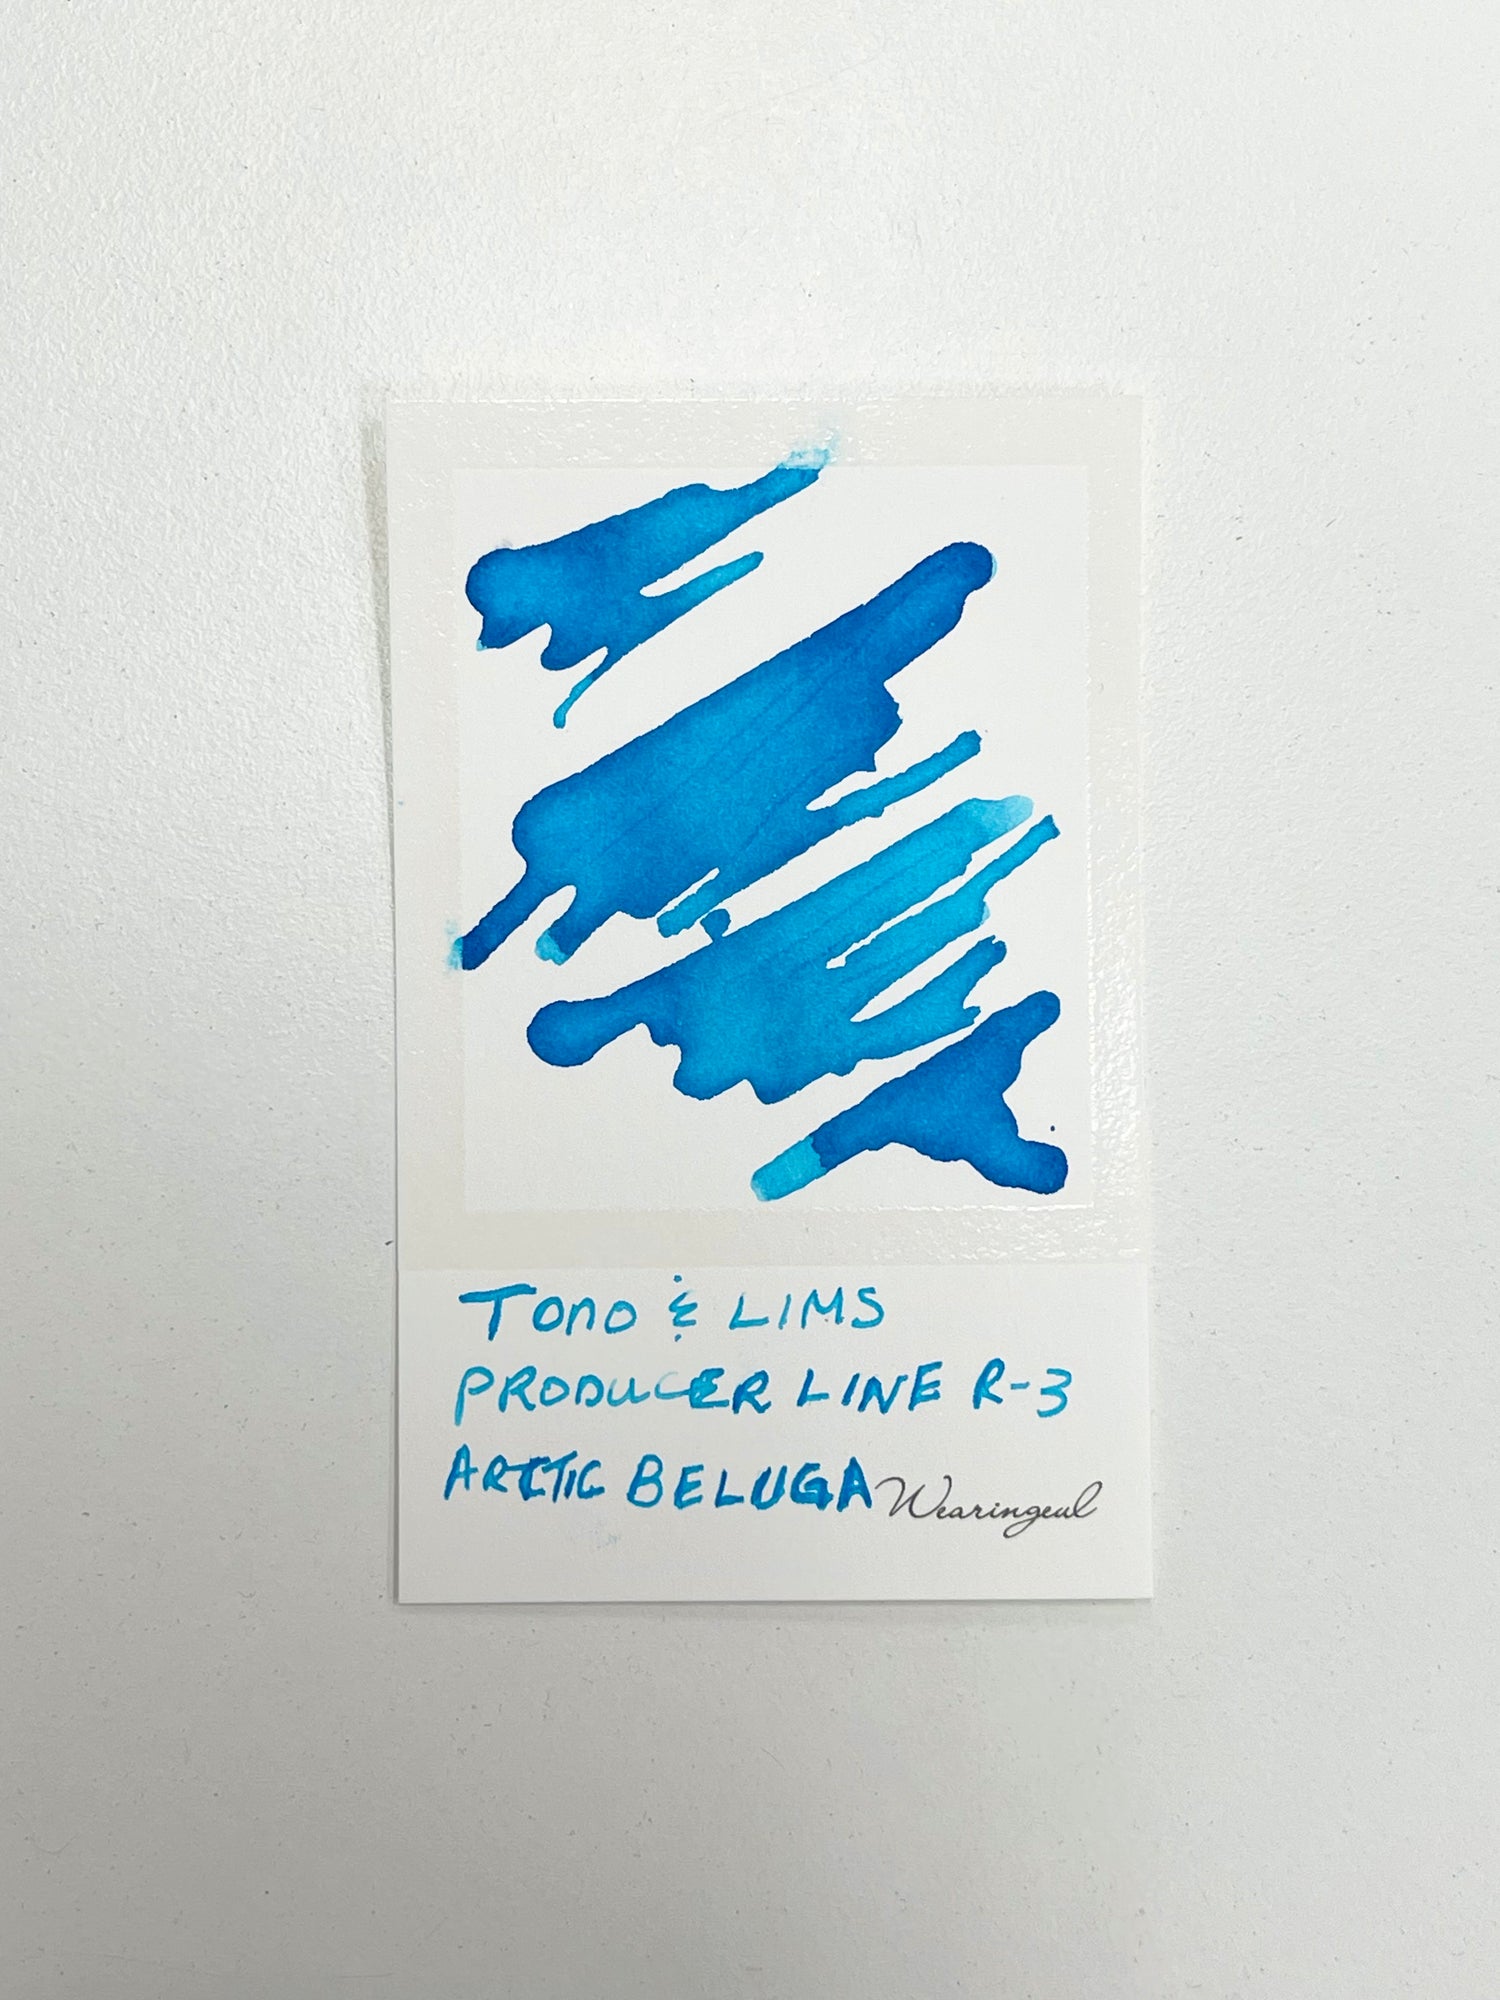 TONO & LIMS
PRODUCER LINE R-3
ARCTIC BELUGA
Wearingeul